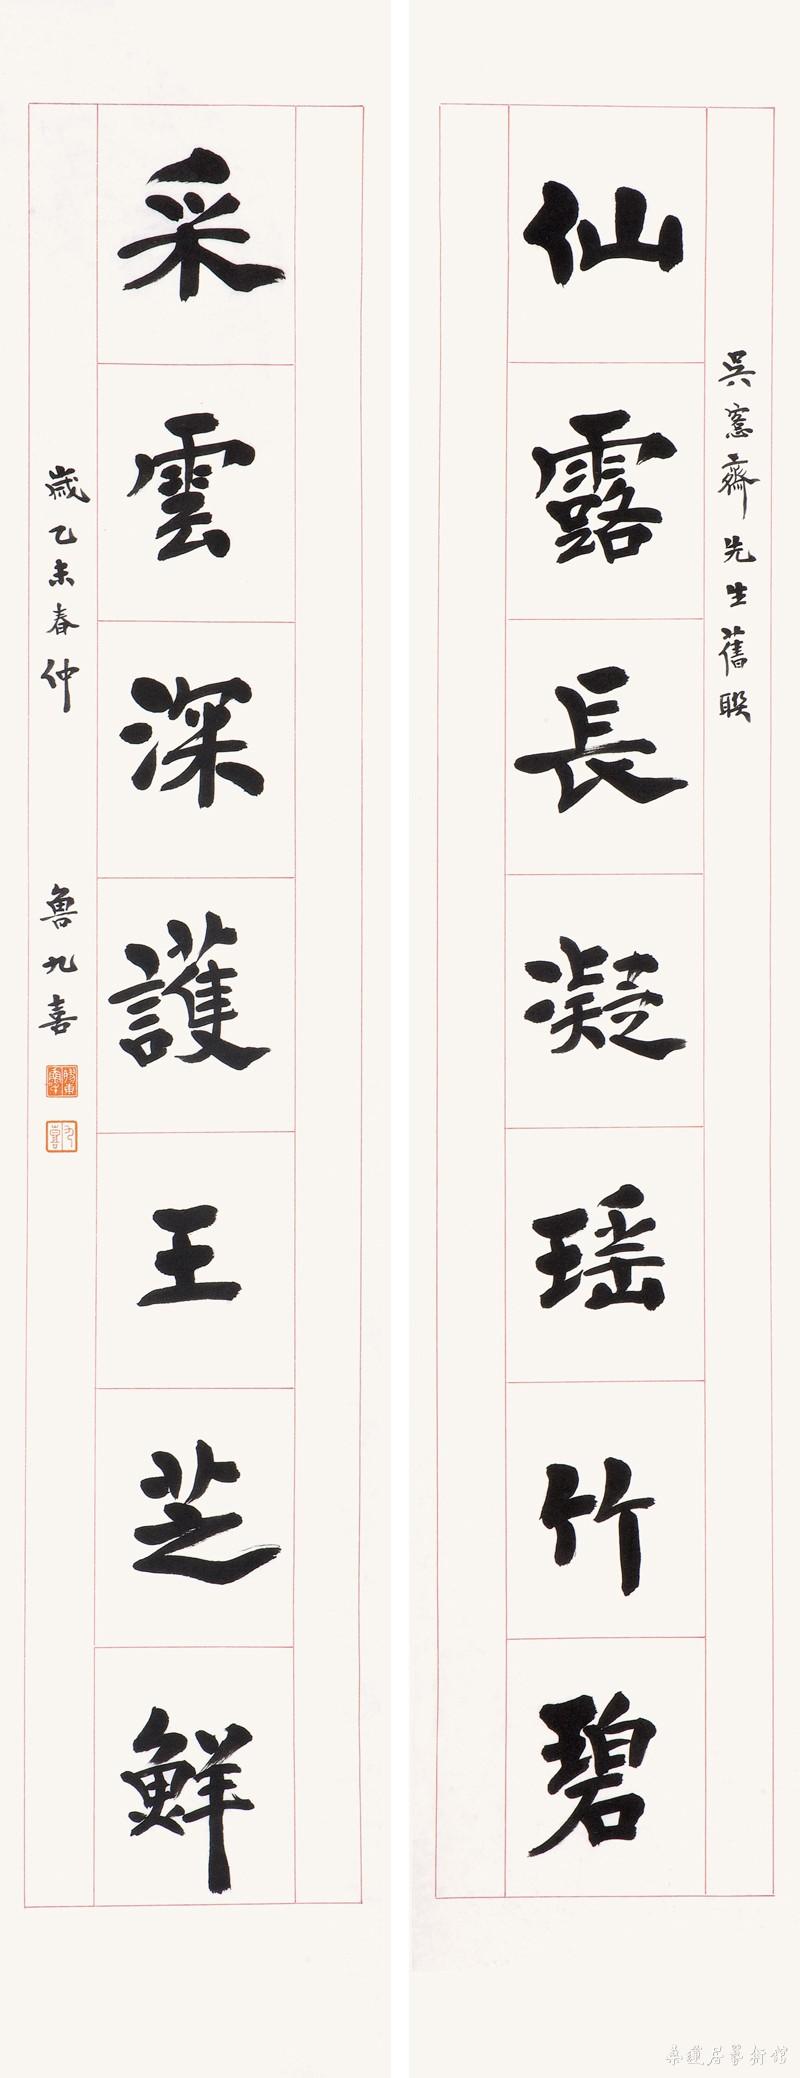 吳愙齋先生舊聯
仙露長凝瑶竹碧
采雲深護王芝鮮
歲乙未春仲
魯九喜
九喜
桑蓮居藝術館